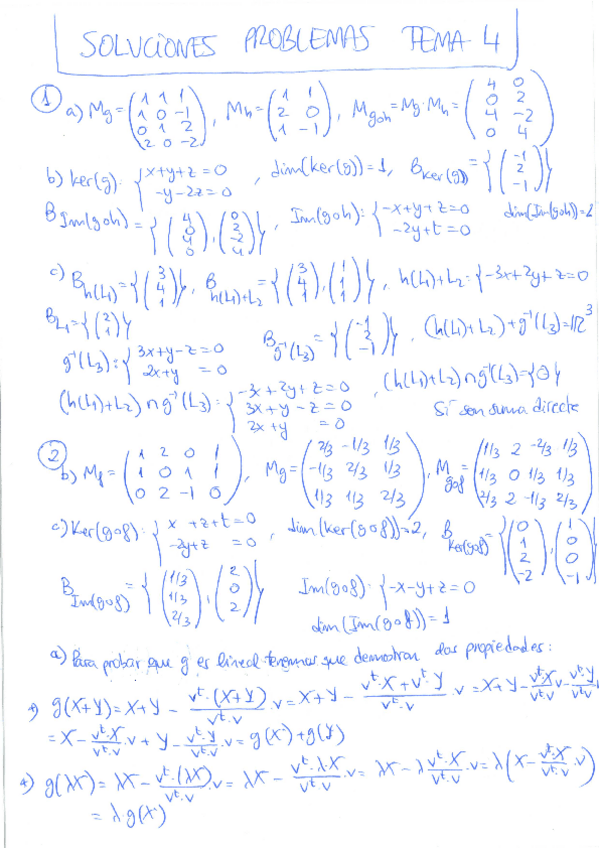 SOLUCIONES PROBLEMAS TEMA 4
① a) Mg = (1 1 1; 1 0 -1; 0 1 2; 2 0 -2), Mh = (1 1; 2 0; 1 -1), Mgoh = Mg·Mh = (4 0; 0 2; 4 -2; 0 4)
b) ker(g): {x+y+z=0; -y-2z=0, dim(ker(g))=1, BKer(g) = {(-1; 2; -1)}
BIm(goh) = {(4; 0; 4; 0), (0; 2; -2; 4)}, Im(goh): {-x+y+z=0; -2y+t=0 dim(Im(goh))=2
c) Bh(L1) = {(3; 4; 1)}, Bh(L1)+L2 = {(3; 4; 1), (1; 1; 1)}, h(L1)+L2: {-3x+2y+z=0
BL1 = {(2; 1)}
g⁻¹(L3): {3x+y-z=0; 2x+y =0 Bg⁻¹(L3) = {(-1; 2; -1)}, (h(L1)+L2)+g⁻¹(L3)=ℝ³
(h(L1)+L2)∩g⁻¹(L3): {-3x+2y+z=0; 3x+y-z=0; 2x+y =0, (h(L1)+L2)∩g⁻¹(L3)={0}
Sí son suma directa
②
b) Mf = (1 2 0 1; 1 0 1 1; 0 2 -1 0), Mg = (2/3 -1/3 1/3; -1/3 2/3 1/3; 1/3 1/3 2/3), Mgof = (1/3 2 -2/3 1/3; 1/3 0 1/3 1/3; 2/3 2 -1/3 2/3)
c) Ker(gof): {x +z+t=0; -2y+z =0, dim(ker(gof))=2, BKer(gof) = {(0; 1; 2; -2), (1; 0; 0; -1)}
BIm(gof) = {(1/3; 1/3; 2/3), (2; 0; 2)} Im(gof): {-x-y+z=0
dim(Im(gof))=1
a) Para probar que g es lineal tenemos que demostrar dos propiedades:
*) g(X+Y)=X+Y - (vᵗ·(X+Y))/(vᵗ·v) ·v = X+Y - (vᵗ·X+vᵗ·Y)/(vᵗ·v) ·v = X+Y - (vᵗ·X)/(vᵗ·v) v - (vᵗ·Y)/(vᵗ·v)
= X - (vᵗ·X)/(vᵗ·v) ·v + Y - (vᵗ·Y)/(vᵗ·v) ·v = g(X)+g(Y)
*) g(λX) = λX - (vᵗ·(λX))/(vᵗ·v) ·v = λX - (vᵗ·λ·X)/(vᵗ·v) ·v = λX - λ (vᵗ·X)/(vᵗ·v) ·v = λ(X - (vᵗ·X)/(vᵗ·v) ·v)
= λ·g(X)